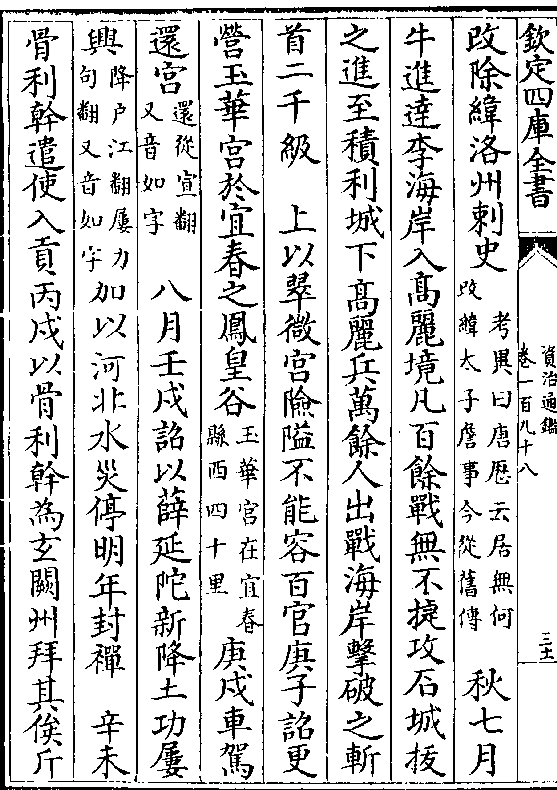 欽定四庫全書
資治通鑑
卷一百九十八
三五
改除緯洛州刺史
考異曰唐厯云居無何
改緯太子詹事今從舊傳
秋七月
牛進逹李海岸入髙麗境凡百餘戰無不捷攻石城拔
之進至積利城下髙麗兵萬餘人出戰海岸擊破之斬
首二千級　上以翠微宫險隘不能容百官庚子詔更
營玉華宫於宜春之鳳皇谷
玉華宫在宜春
縣西四十里
庚戍車駕
還宫
還從宣翻
又音如字
八月壬戍詔以薛延陀新降土功屢
興
降户江翻屢力
句翻又音如字
加以河北水災停明年封禪　辛未
骨利幹遣使入貢丙戍以骨利幹為玄闕州拜其俟斤